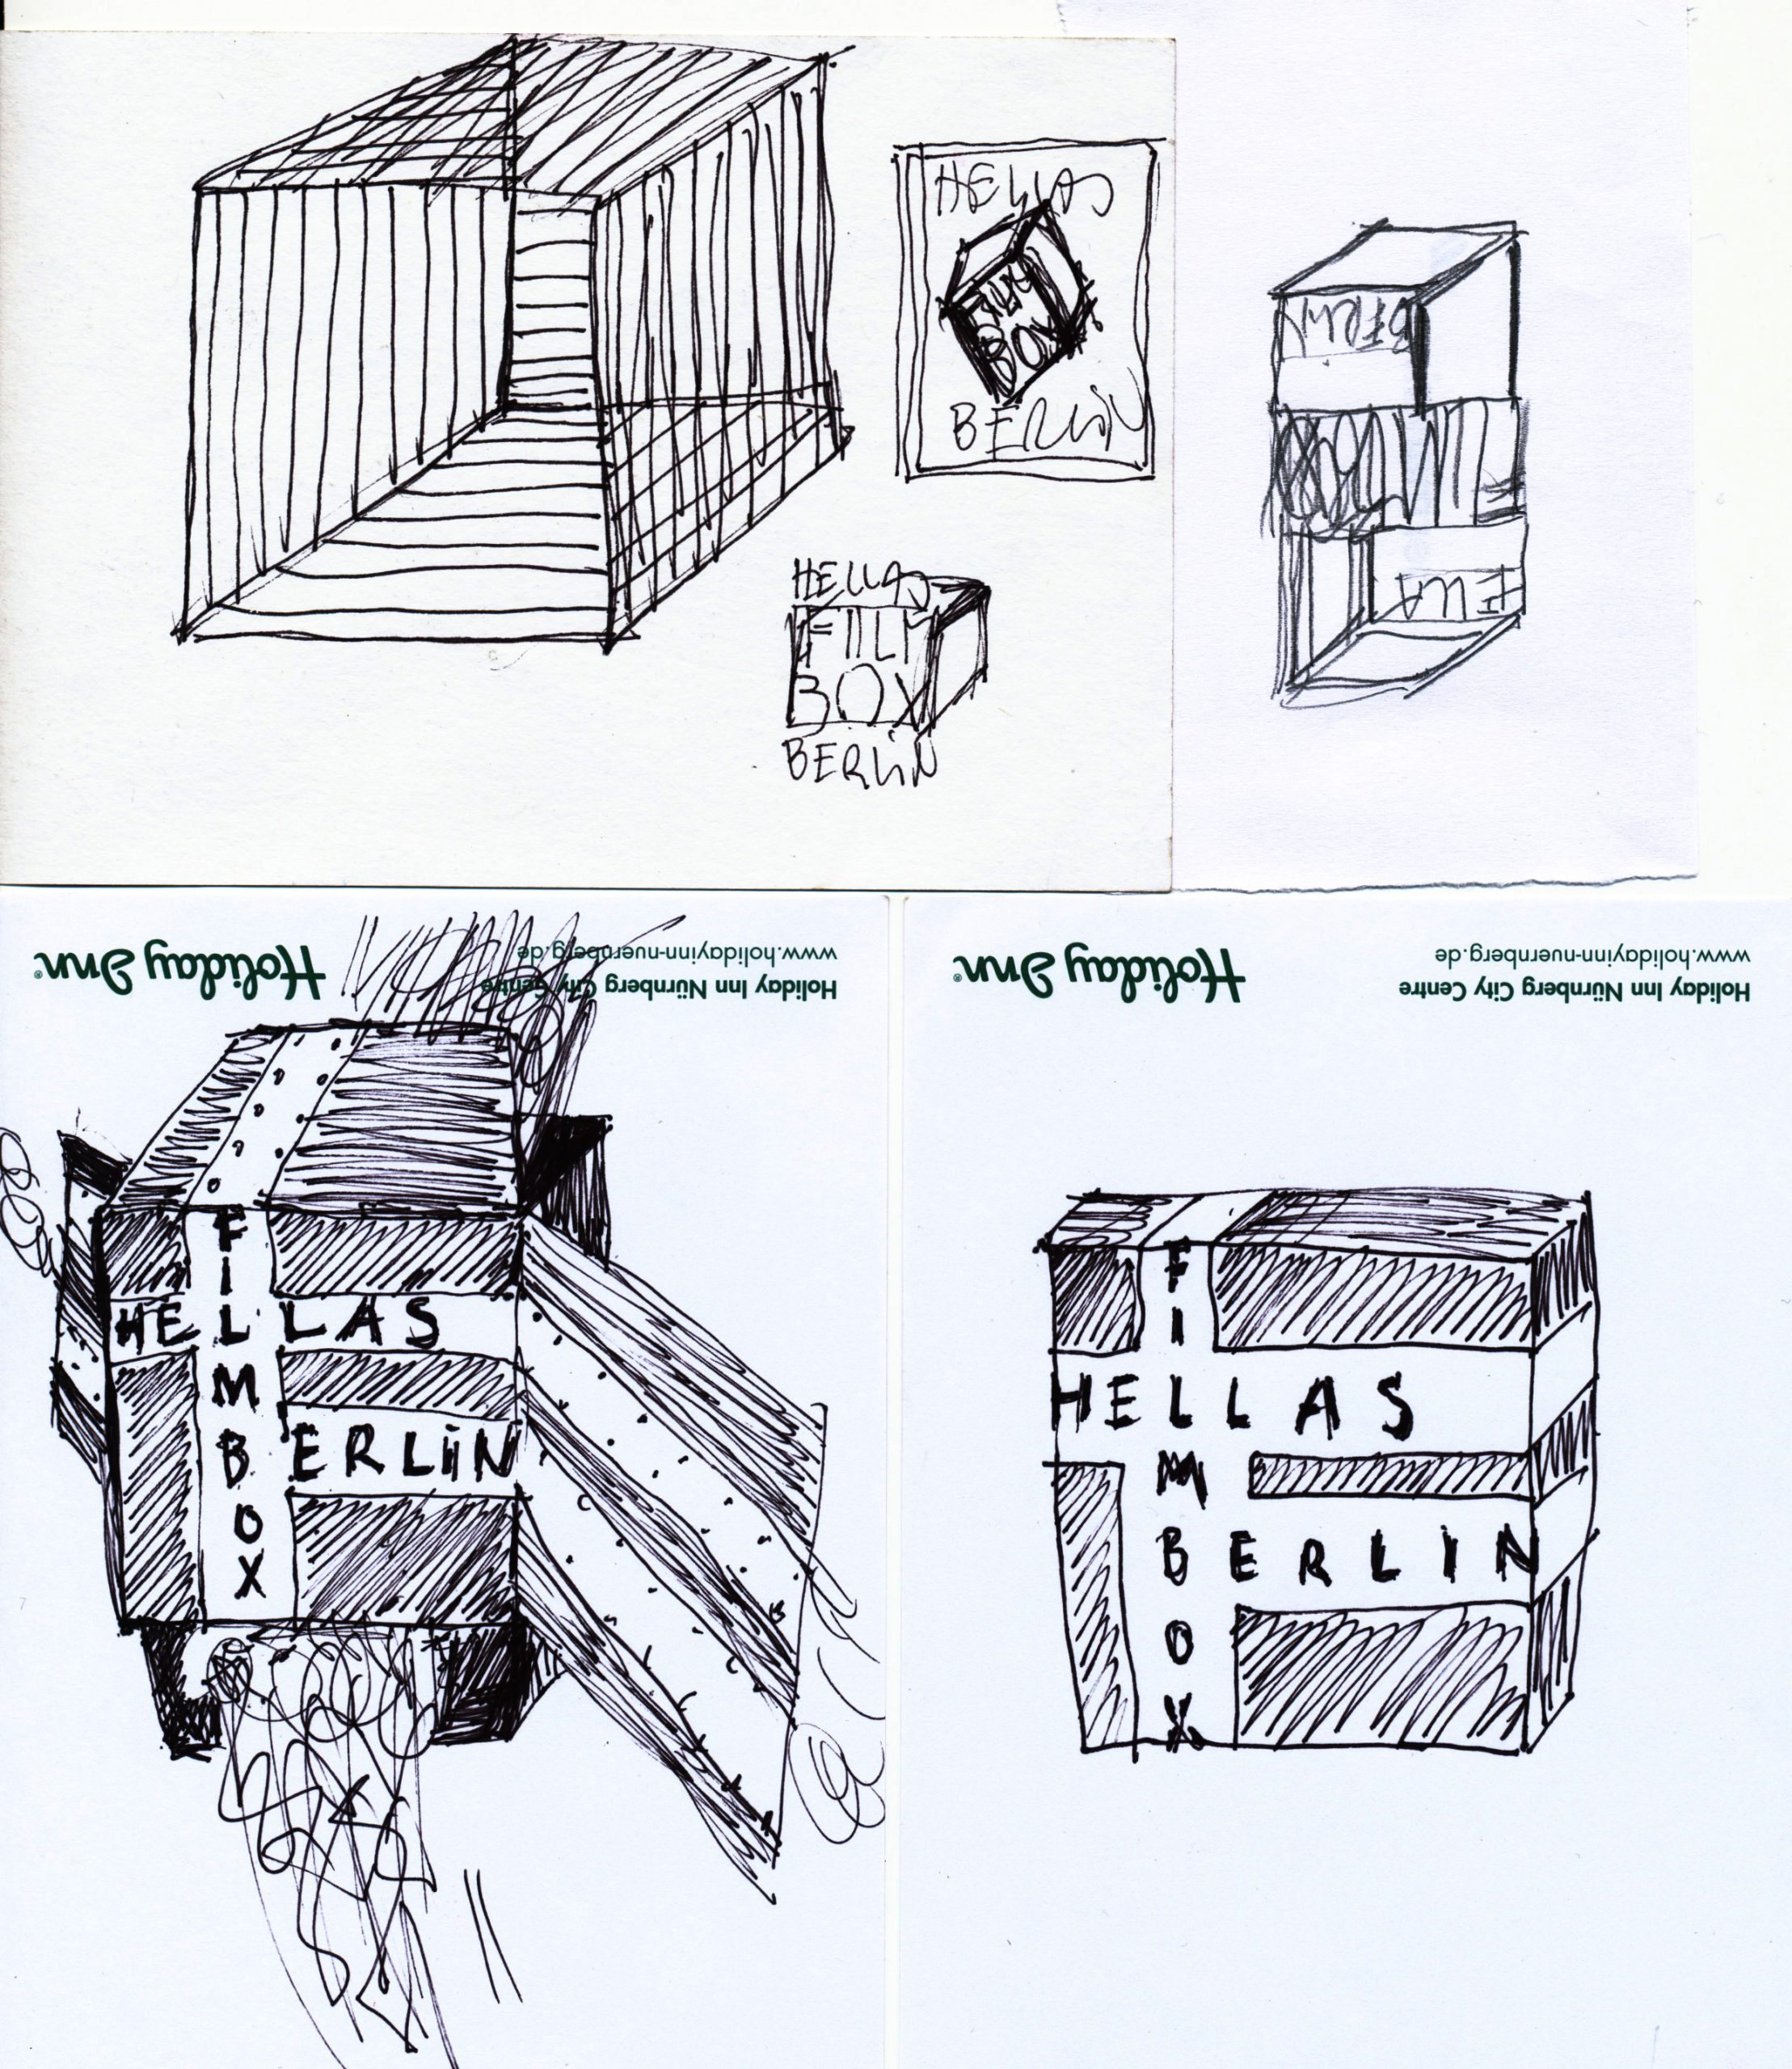 HELLAS
FILM
BOX
BERLiN
HELLAS
FILM
BOX
BERLiN
BERLiN
Holiday Inn®
www.holidayinn-nuernberg.de
Holiday Inn Nürnberg City Centre
FILM
BOX
HELLAS
BERLiN
Holiday Inn®
www.holidayinn-nuernberg.de
Holiday Inn Nürnberg City Centre
FILM
BOX
HELLAS
BERLIN